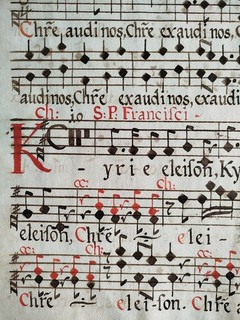 Chr̃e, audi nos, Chr̃e exaudi nos, C
audinos, Chr̃e exaudi nos, exaudi
Ch: io S. P. Francisci -
K - yrie eleison, Ky
cc: Ch:
eleison, Chr̃e elei -
cc: Ch:
Chr̃e elei-son. Chr̃e